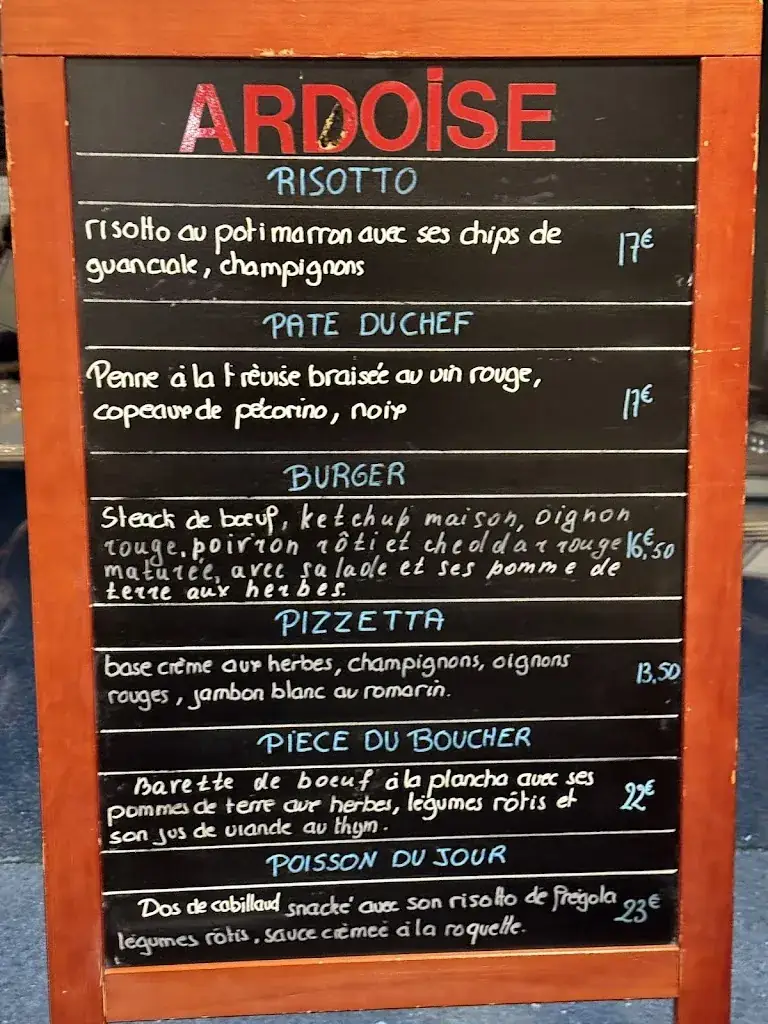 ARDOİSE
RISOTTO
risotto au potimarron avec ses chips de
guanciale, champignons
17€
PATE DU CHEF
Penne à la trévise braisée au vin rouge,
copeaux de pécorino, noix
17€
BURGER
Steack de bœuf, ketchup maison, oignon
rouge, poivron rôti et cheddar rouge 16€,50
maturée, avec salade et ses pomme de
terre aux herbes.
PIZZETTA
base crème aux herbes, champignons, oignons
rouges, jambon blanc au romarin.
13,50
PIECE DU BOUCHER
Barette de boeuf à la plancha avec ses
pommes de terre aux herbes, légumes rôtis et
son jus de viande au thym.
22€
POISSON DU JOUR
Dos de cabillaud snacké avec son risotto de fregola
légumes rôtis, sauce crèmee à la roquette.
23€